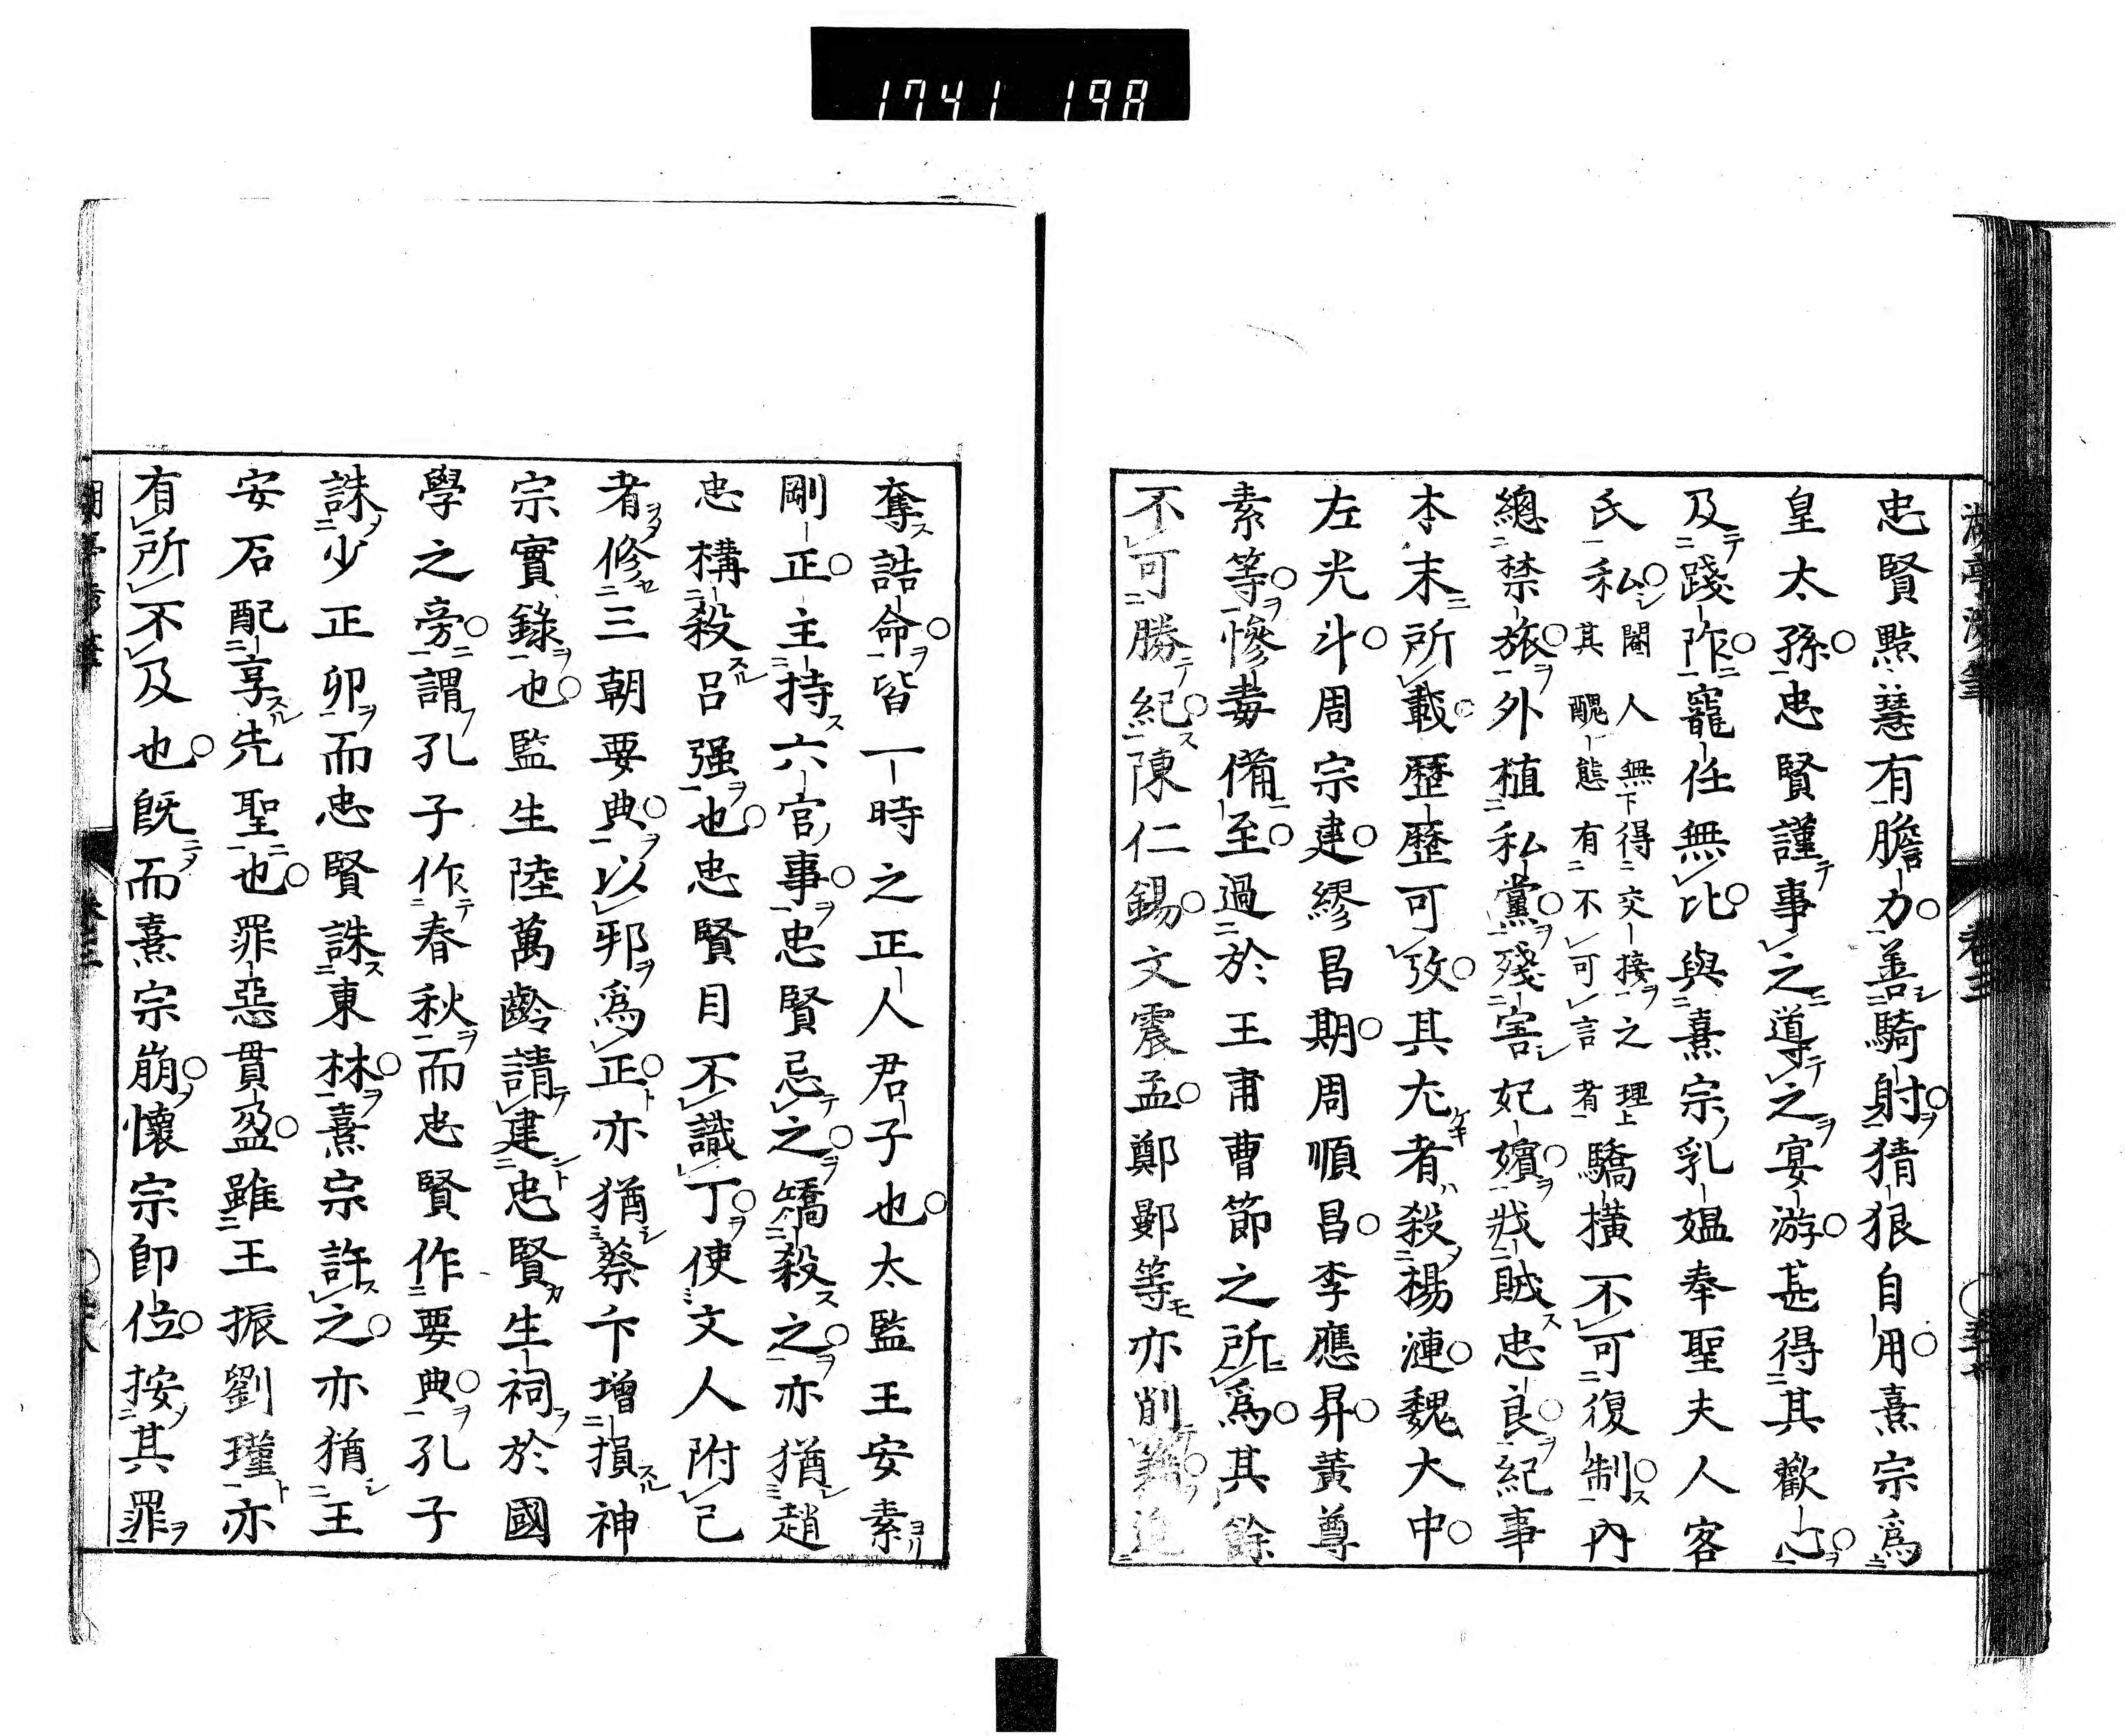 1741 198
忠賢點慧有膽力善騎射猜狠自用熹宗爲
皇太孫忠賢謹事之導之宴游甚得其歡心
及踐阼寵任無比與熹宗乳媼奉聖夫人客
氏私私閹人無得交接之理其醜態有不可言者驕橫不可復制內
總禁旅外植私黨殘害妃嬪戕賊忠良紀事
本末所載歷歷可攷其尤者殺楊漣魏大中
左光斗周宗建繆昌期周順昌李應昇黃尊
素等慘毒備至過於王甫曹節之所爲其餘
不可勝紀陳仁錫文震孟鄭鄤等亦削籍追
奪誥命皆一時之正人君子也太監王安素
剛正主持六官事忠賢忌之矯殺之亦猶趙
忠構殺呂强也忠賢目不識丁使文人附己
者修三朝要典以邪爲正亦猶蔡卞增損神
宗實錄也監生陸萬齡請建忠賢生祠於國
學之旁謂孔子作春秋而忠賢作要典孔子
誅少正卯而忠賢誅東林熹宗許之亦猶王
安石配享先聖也罪惡貫盈雖王振劉瑾亦
有所不及也旣而熹宗崩懷宗卽位按其罪